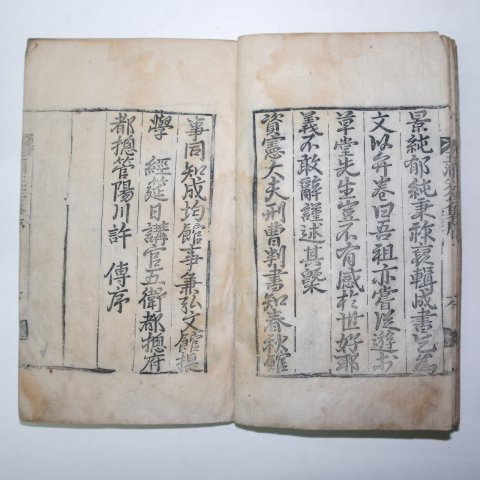 景純郁純秉祢裒輯成書乞爲
文以弁卷曰吾祖亦嘗從遊於
草堂先生豈不有感於世好耶
義不敢辭謹述其槩
資憲大夫刑曹判書知春秋館
事同知成均館事兼弘文館提
學 經筵日講官五衛都摠府
都摠管陽川許 傳序